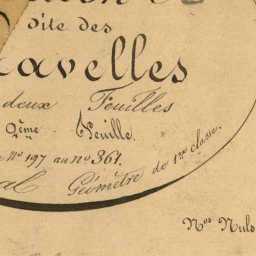 dite des
avelles
deux Feuilles
2ème Feuille.
N° 197 au n° 361.
al Géomètre de 1re classe.
Nos Nuls